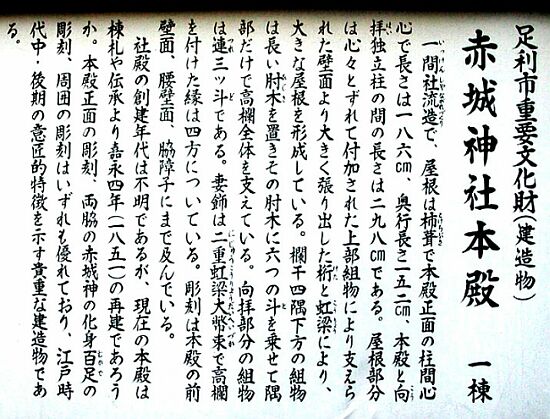 足利市重要文化財(建造物)
赤城神社本殿 一棟
一間社流造で、屋根は柿葺で本殿正面の柱間心
心で長さは一八六cm、奥行長さ一五二cm、本殿と向
拝独立柱の間の長さは二九八cmである。屋根部分
は心々とずれて付加された上部組物により支えら
れた壁面より大きく張り出した桁と虹梁により、
大きな屋根を形成している。欄干四隅下方の組物
は長い肘木を置きその肘木に六つの斗を乗せて隅
部だけで高欄全体を支えている。向拝部分の組物
は連三ッ斗である。妻飾は二重虹梁大幣束で高欄
を付けた縁は四方についている。彫刻は本殿の前
壁面、腰壁面、脇障子にまで及んでいる。
社殿の創建年代は不明であるが、現在の本殿は
棟札や伝承より嘉永四年(一八五一)の再建であろう
か。本殿正面の彫刻、両脇の赤城神の化身百足の
彫刻、周囲の彫刻はいずれも優れており、江戸時
代中・後期の意匠的特徴を示す貴重な建造物であ
る。